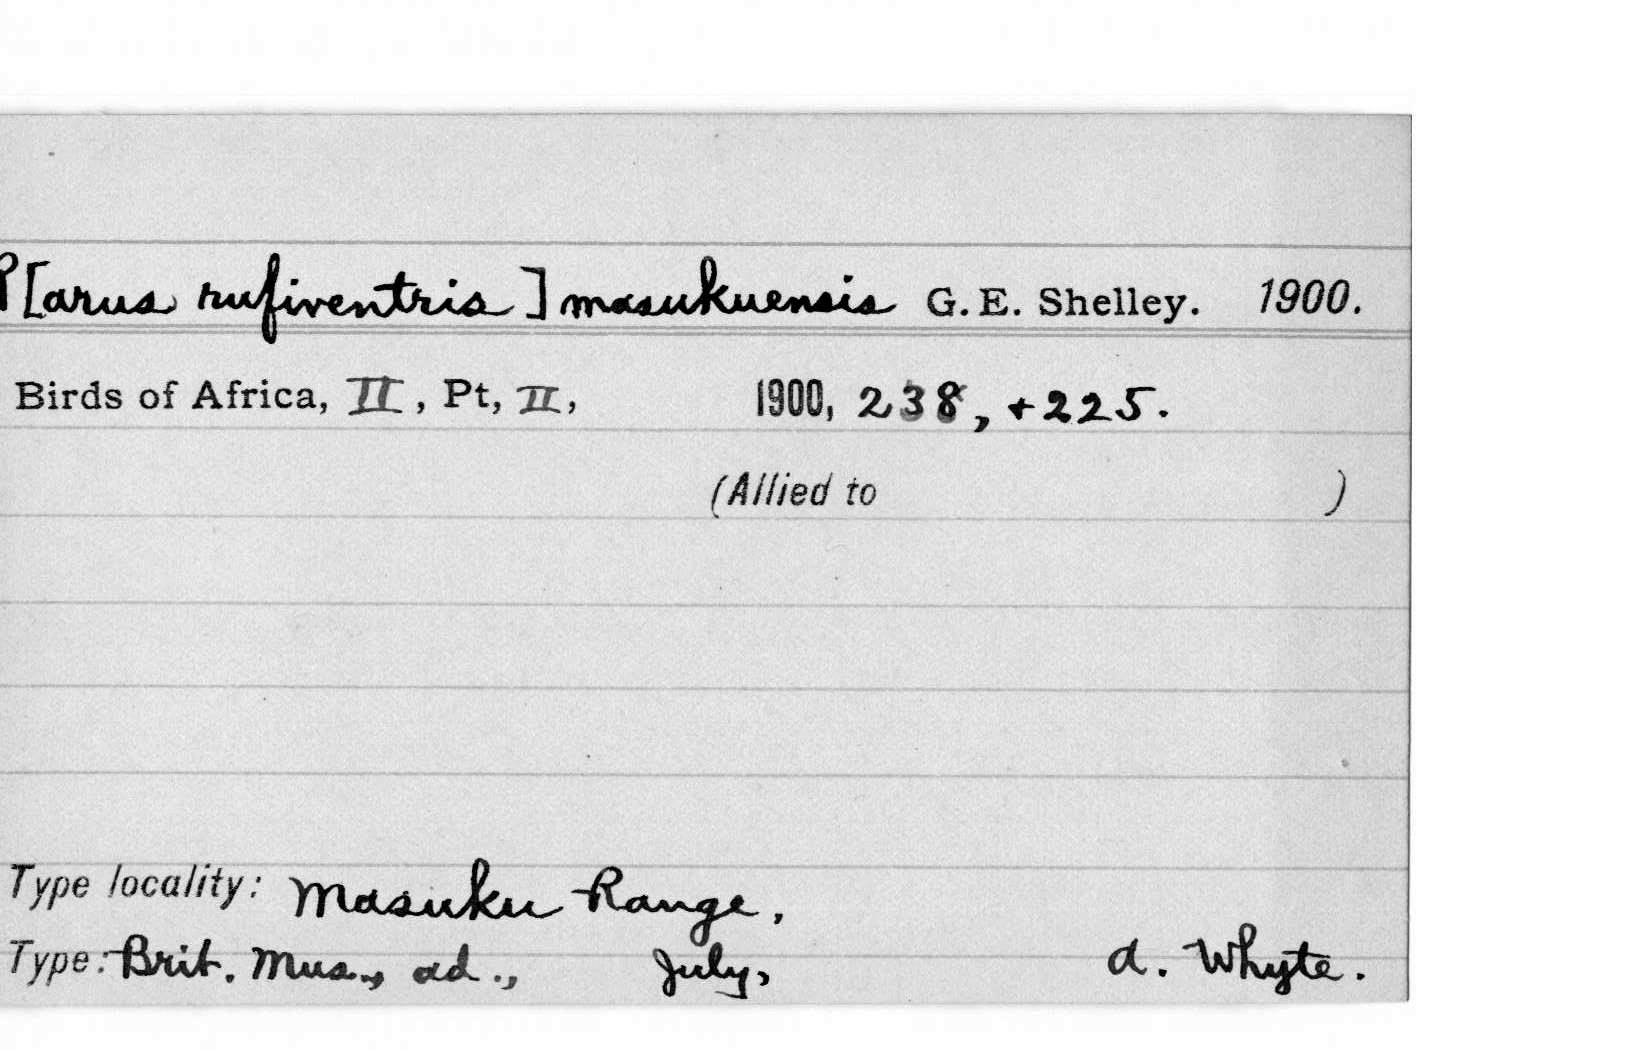 P[arus rufiventris] masukuensis G. E. Shelley. 1900.
Birds of Africa, II, Pt, II, 1900, 238, + 225.
(Allied to )
Type locality: Masuku Range,
Type: Brit. Mus., ad., July, A. Whyte.